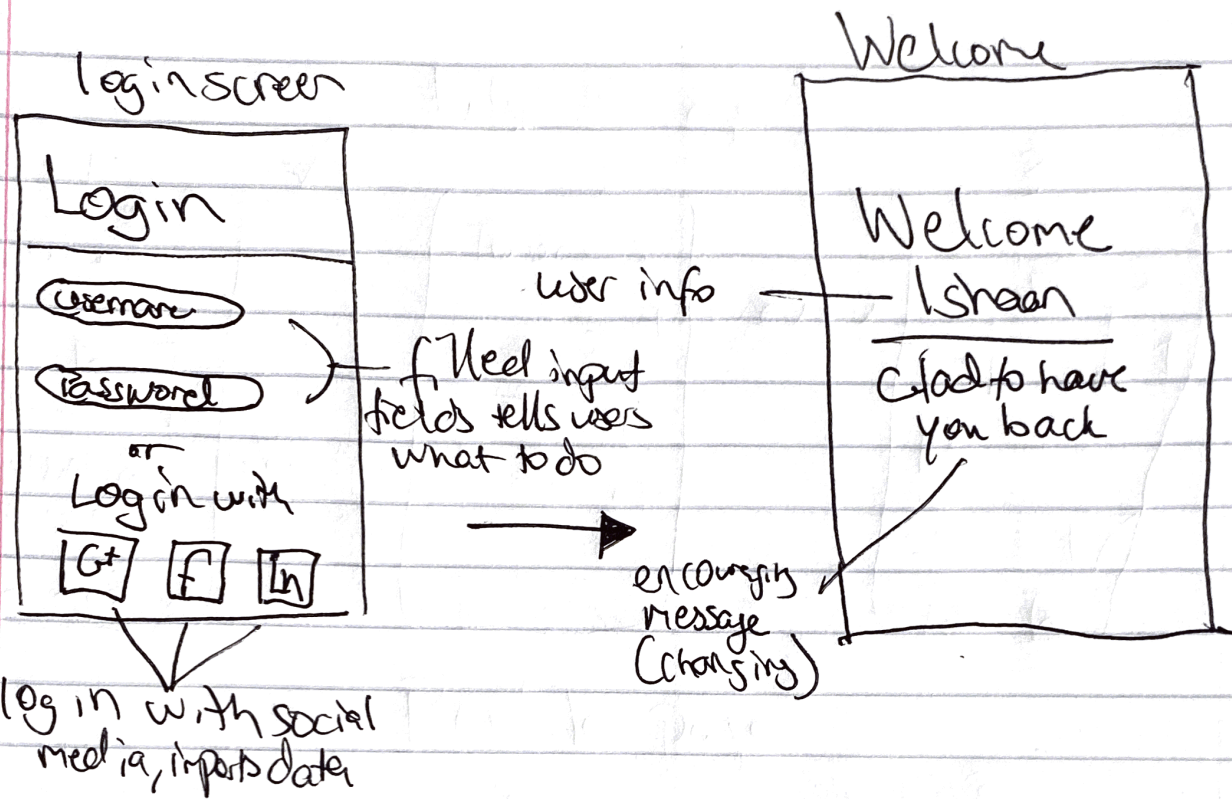 login screen
Login
username
Password
or
Login with
G+ f In
log in with social
media, imports data
filled input
fields tells users
what to do
Welcome
Welcome
Ishaan
Glad to have
you back
user info
encouraging
message
(changing)